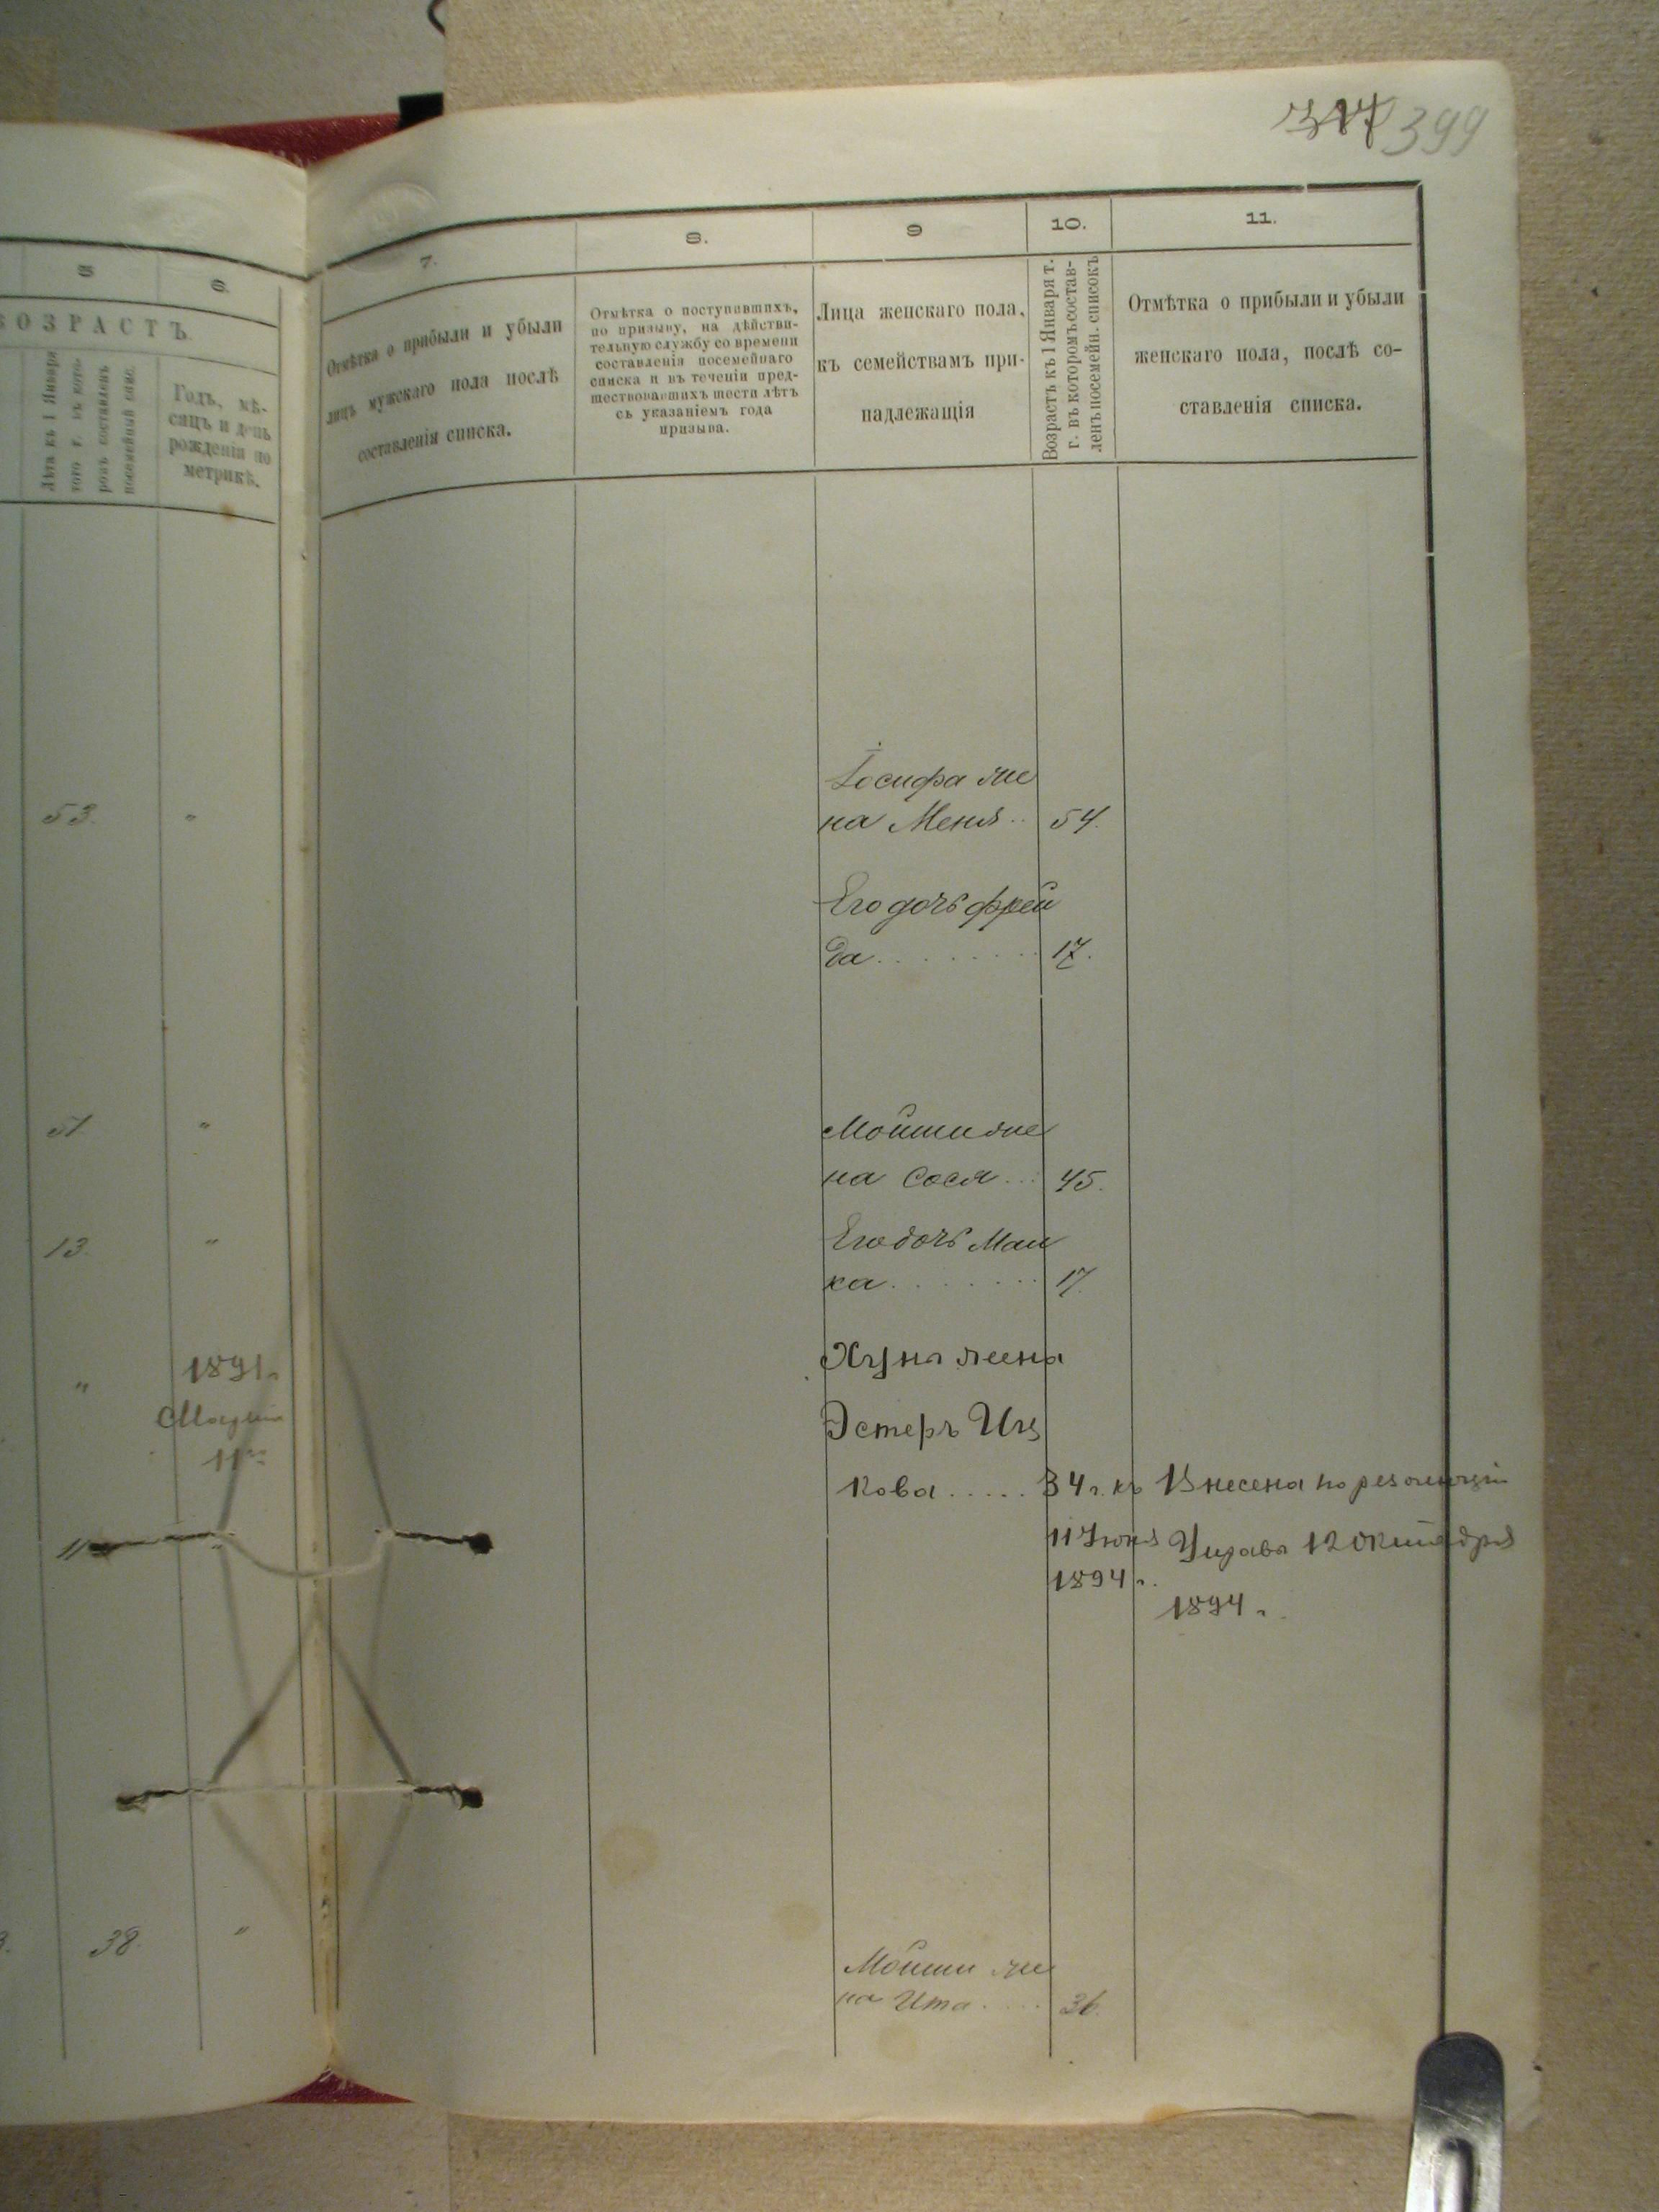 399
5
6.
ВОЗРАСТЪ.
Лѣта къ 1 Января
того г. въ кото-
ромъ составленъ
посемейный спис.
Годъ, мѣ-
сяцъ и день
рожденія по
метрикѣ.
53. "
51. "
13. "
" 1891 г.
11
38. "
7.
8.
9
10.
11.
Отмѣтка о прибыли и убыли
лицъ мужскаго пола послѣ
составленія списка.
Отмѣтка о поступившихъ,
по призыву, на дѣйстви-
тельную службу со времени
составленія посемейнаго
списка и въ теченіи пред-
шествовавшихъ шести лѣтъ
съ указаніемъ года
призыва.
Лица женскаго пола,
къ семействамъ при-
надлежащія
Возрастъ къ 1 Января т.
г. въ которомъ состав-
ленъ посемейн. списокъ
Отмѣтка о прибыли и убыли
женскаго пола, послѣ со-
ставленія списка.
Іосифа же
на Меня .. 54.
Его дочь Фрей
да ........ 17.
Мойши же
на Сося ... 45.
Его дочь Маи
ка ........ 17.
Хуна жена
Эстеръ Иц
кова ..... 34 г. къ Внесена по резолюціи
11 Іюня Управы 12 октября
1894 г.
1894 г.
Мойши же
на Ита .... 36.